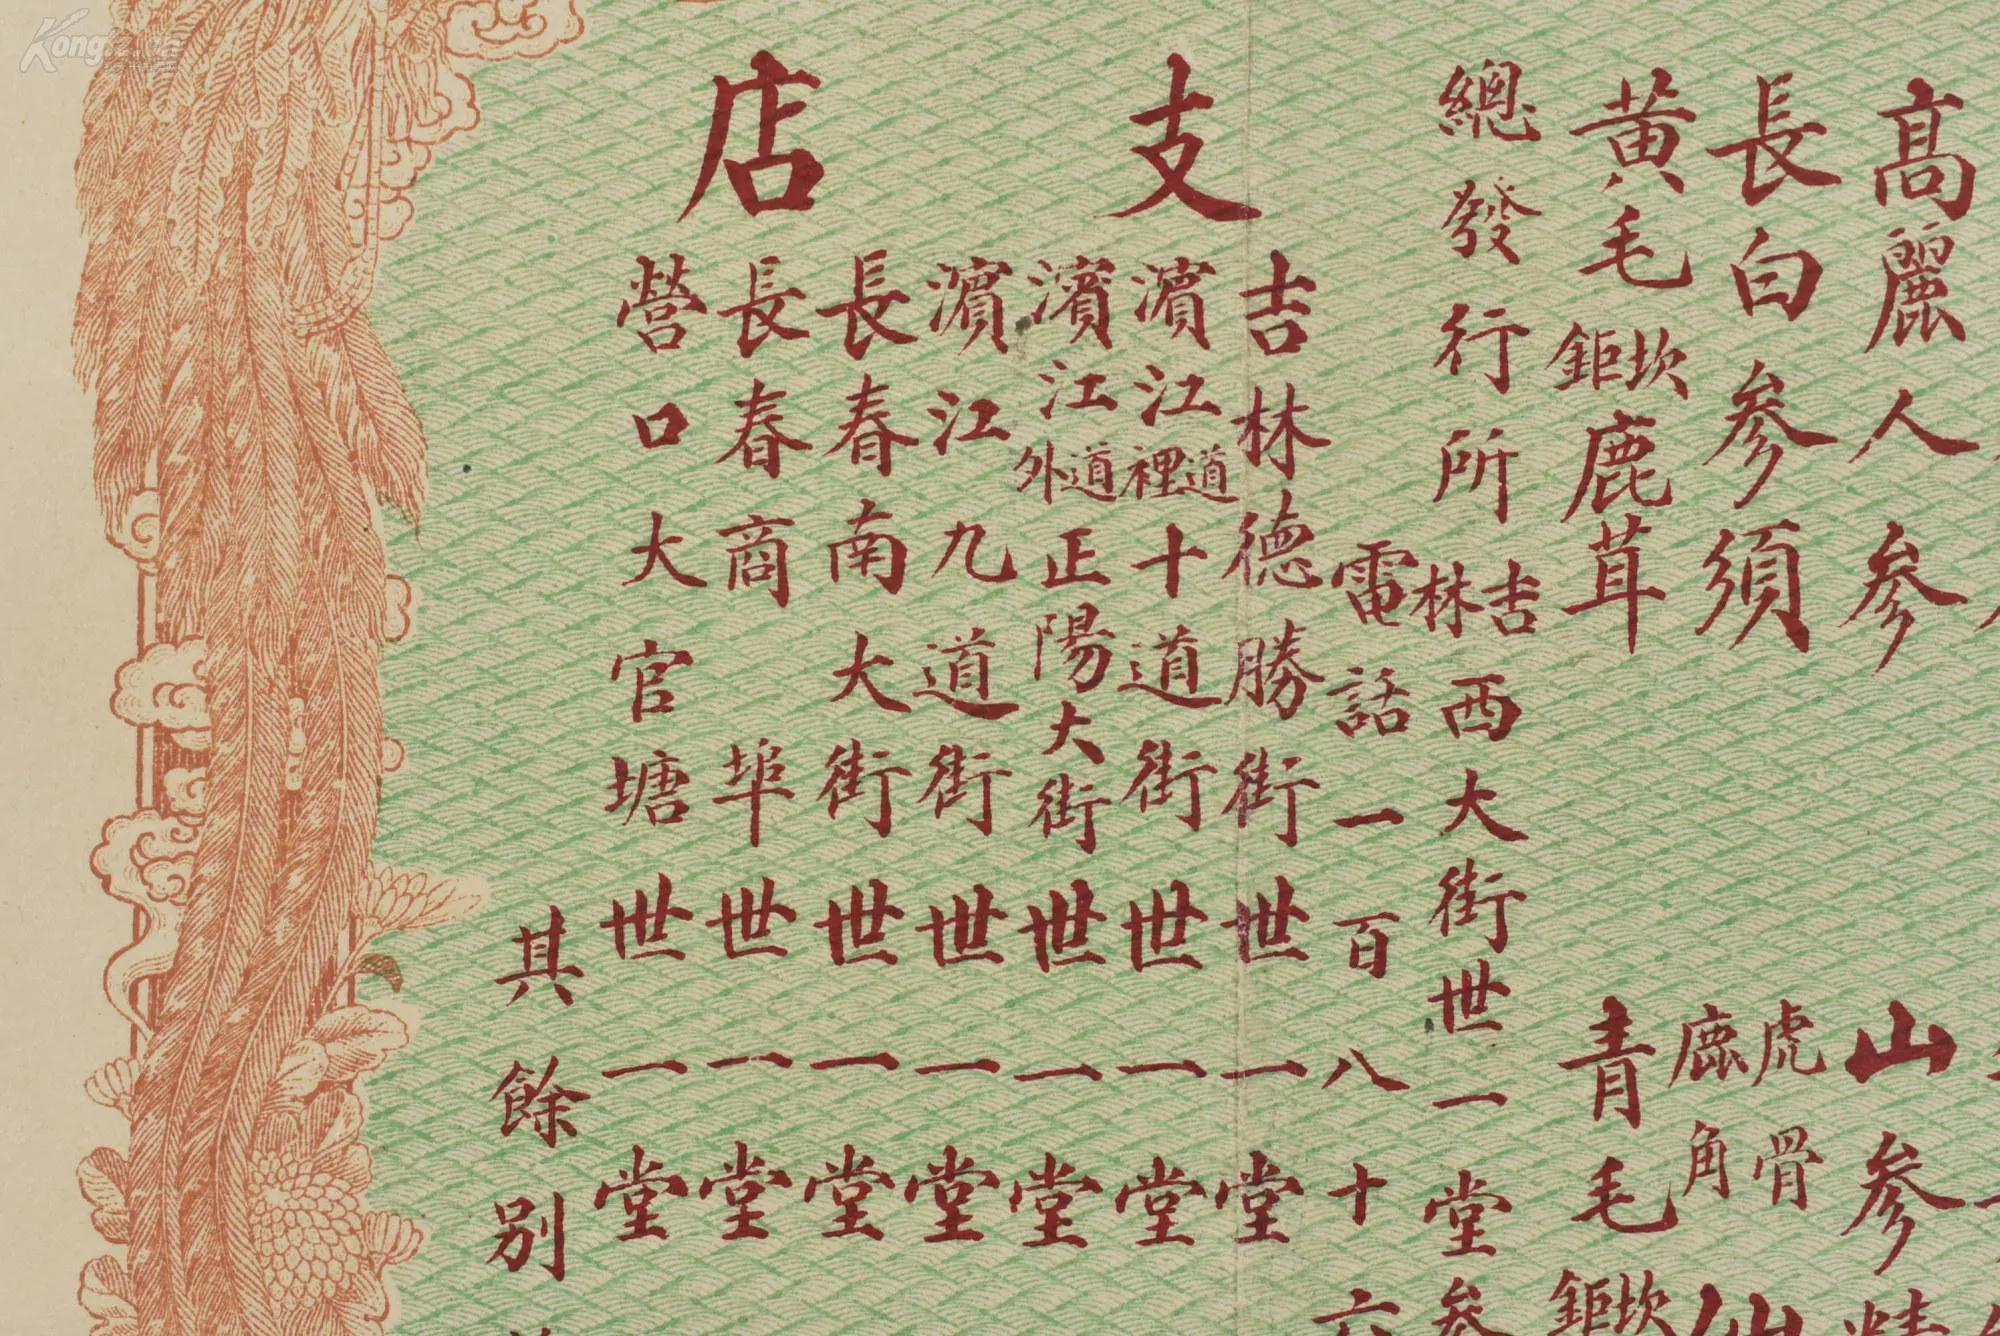 高麗人參
山參精
長白參須
虎骨
鹿角
仙
黃毛坎鉅鹿茸
青毛坎鉅
總發行所吉林西大街世一堂參
電話一百八十六
支店
吉林德勝街世一堂
濱江道裡十道街世一堂
濱江道外正陽大街世一堂
濱江九道街世一堂
長春南大街世一堂
長春商埠世一堂
營口大官塘世一堂
其餘別